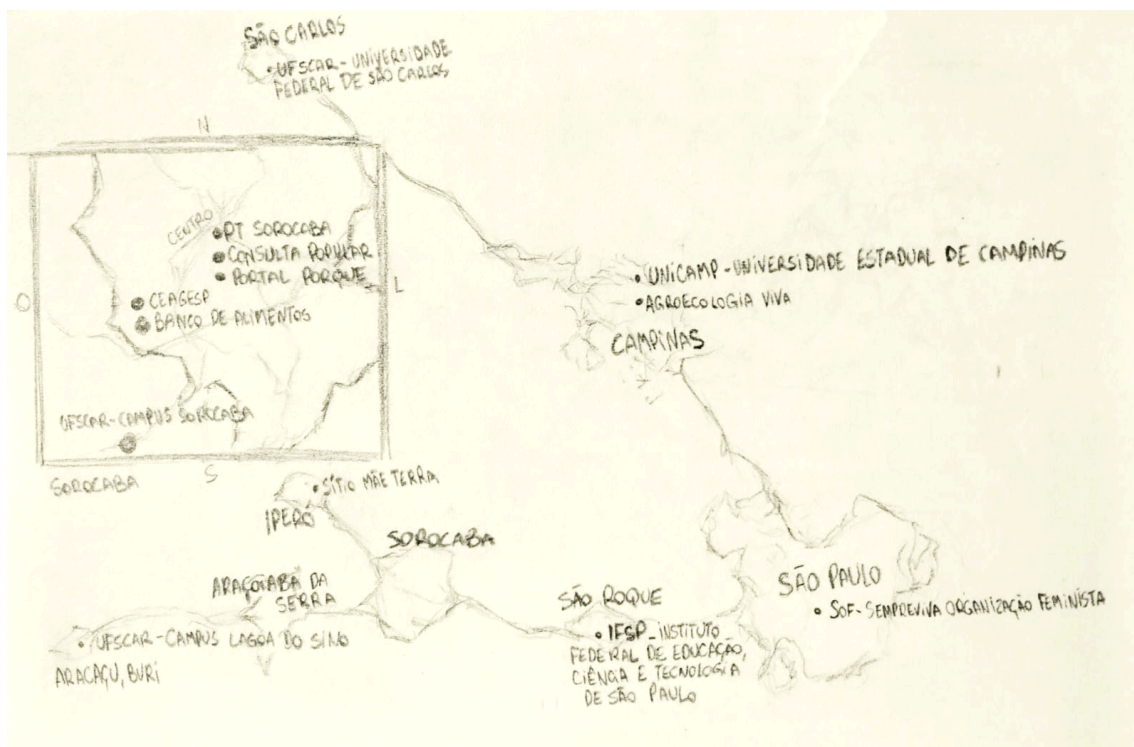 SÃO CARLOS
• UFSCAR - UNIVERSIDADE
FEDERAL DE SÃO CARLOS
N
CENTRO
• PT SOROCABA
• CONSULTA POPULAR
• PORTAL PORQUE
O
L
• CEAGESP
• BANCO DE ALIMENTOS
UFSCAR-CAMPUS SOROCABA
SOROCABA
S
• UNICAMP - UNIVERSIDADE ESTADUAL DE CAMPINAS
• AGROECOLOGIA VIVA
CAMPINAS
• SÍTIO MÃE TERRA
IPERÓ
SOROCABA
ARAÇOIABA DA
SERRA
• UFSCAR - CAMPUS LAGOA DO SINO
ARACAÇU, BURI
SÃO ROQUE
• IFSP_INSTITUTO
FEDERAL DE EDUCAÇÃO,
CIÊNCIA E TECNOLOGIA
DE SÃO PAULO
SÃO PAULO
• SOF - SEMPREVIVA ORGANIZAÇÃO FEMINISTA